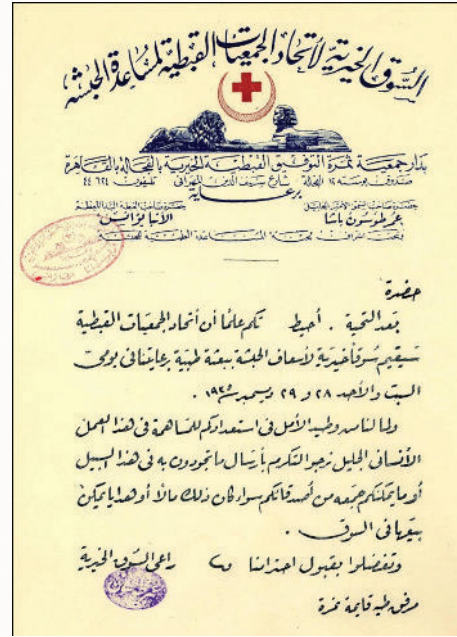 السوق الخيرية لاتحاد الجمعيات القبطية لمساعدة الحبشة
بدار جمعية ثمرة التوفيق القبطية الخيرية بالفجالة بالقاهرة
صندوق بوسته ١٢ الفجالة شارع سيف الدين المهرانى تليفون ٤٤٦٢٤
برعاية
حضرة صاحب السمو الأمير الجليل حضرة صاحب الغبطة البابا المعظم
عمر طوسون باشا الأنبا يؤانس
وتحت اشراف لجنة المساعدة الطبية للحبشة
حضرة
بعد التحية . أحيط تكم علمًا أن أتحاد الجمعيات القبطية
سيقيم سوقًا خيرية لأسعاف الحبشة ببعثة طبية برعايتنا فى يومى
السبت والأحد ٢٨ و ٢٩ ديسمبر سنة ١٩٣٥ .
ولما لنا من وطيد الأمل فى استعدادكم للمساهمة فى هذا العمل
الأنسانى الجليل نرجو التكرم بأرسال ما تجودون به فى هذا السبيل
أو ما يمكنكم جمعه من أصدقائكم سواء كان ذلك مالاً أو هدايا يمكن
بيعها فى السوق .
وتفضلوا بقبول احترامنا راعى السوق الخيرية
مرفق طيه قايمة نمرة